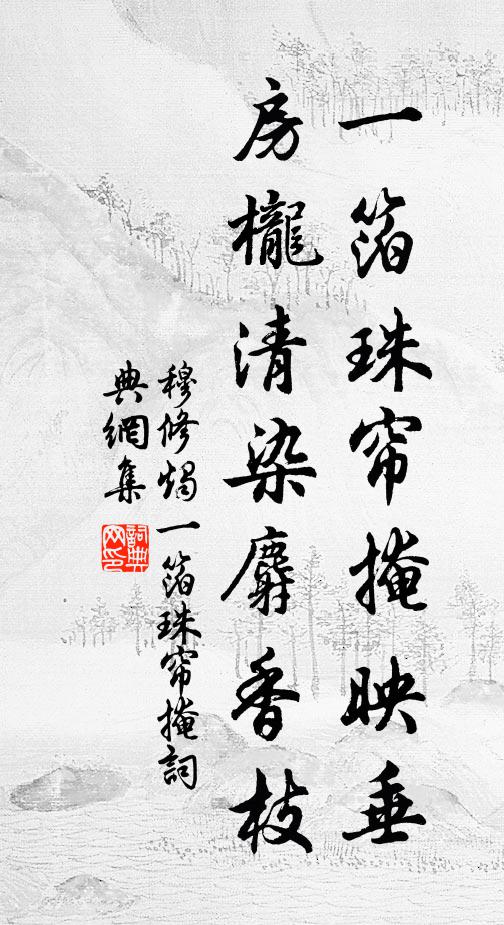 一箔珠帘掩映垂
房櫳清染麝香枝
穆修燭一箔珠帘掩詞
典網集
詞典
网印